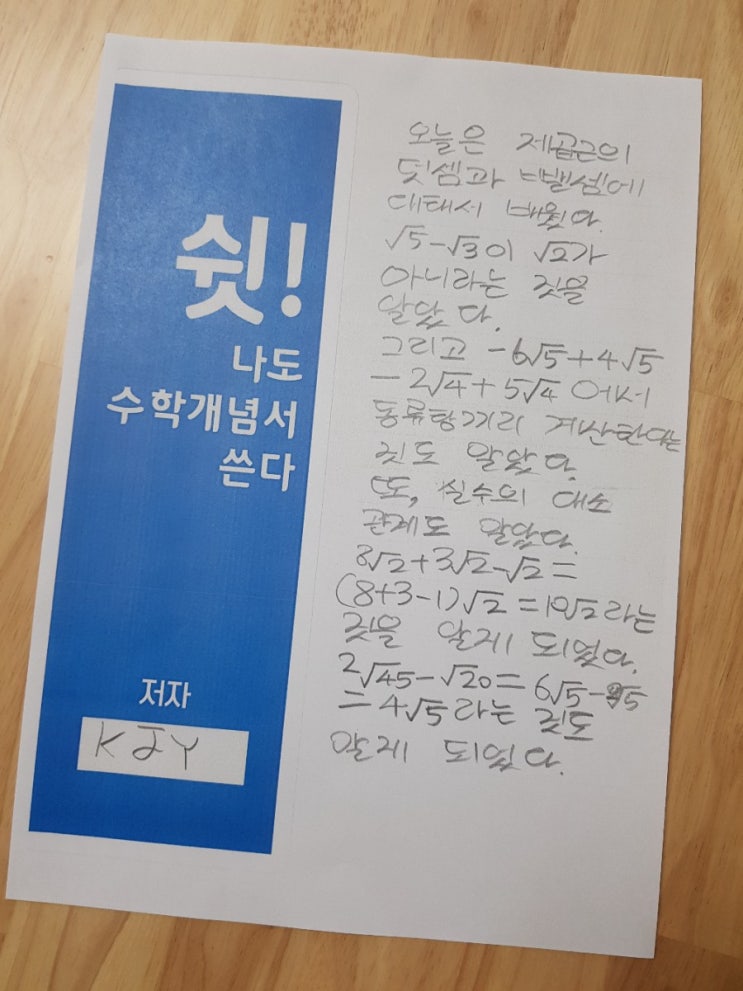 쉿!
나도
수학개념서
쓴다
저자
KJY
오늘은 제곱근의
덧셈과 뺄셈에
대해서 배웠다.
√5-√3이 √2가
아니라는 것을
알았다.
그리고 -6√5+4√5
-2√4+5√4 에서
동류항끼리 계산한다는
것도 알았다.
또, 실수의 대소
관계도 알았다.
8√2+3√2-√2=
(8+3-1)√2=10√2라는
것을 알게 되었다.
2√45-√20=6√5-
=4√5라는 것도
알게 되었다.